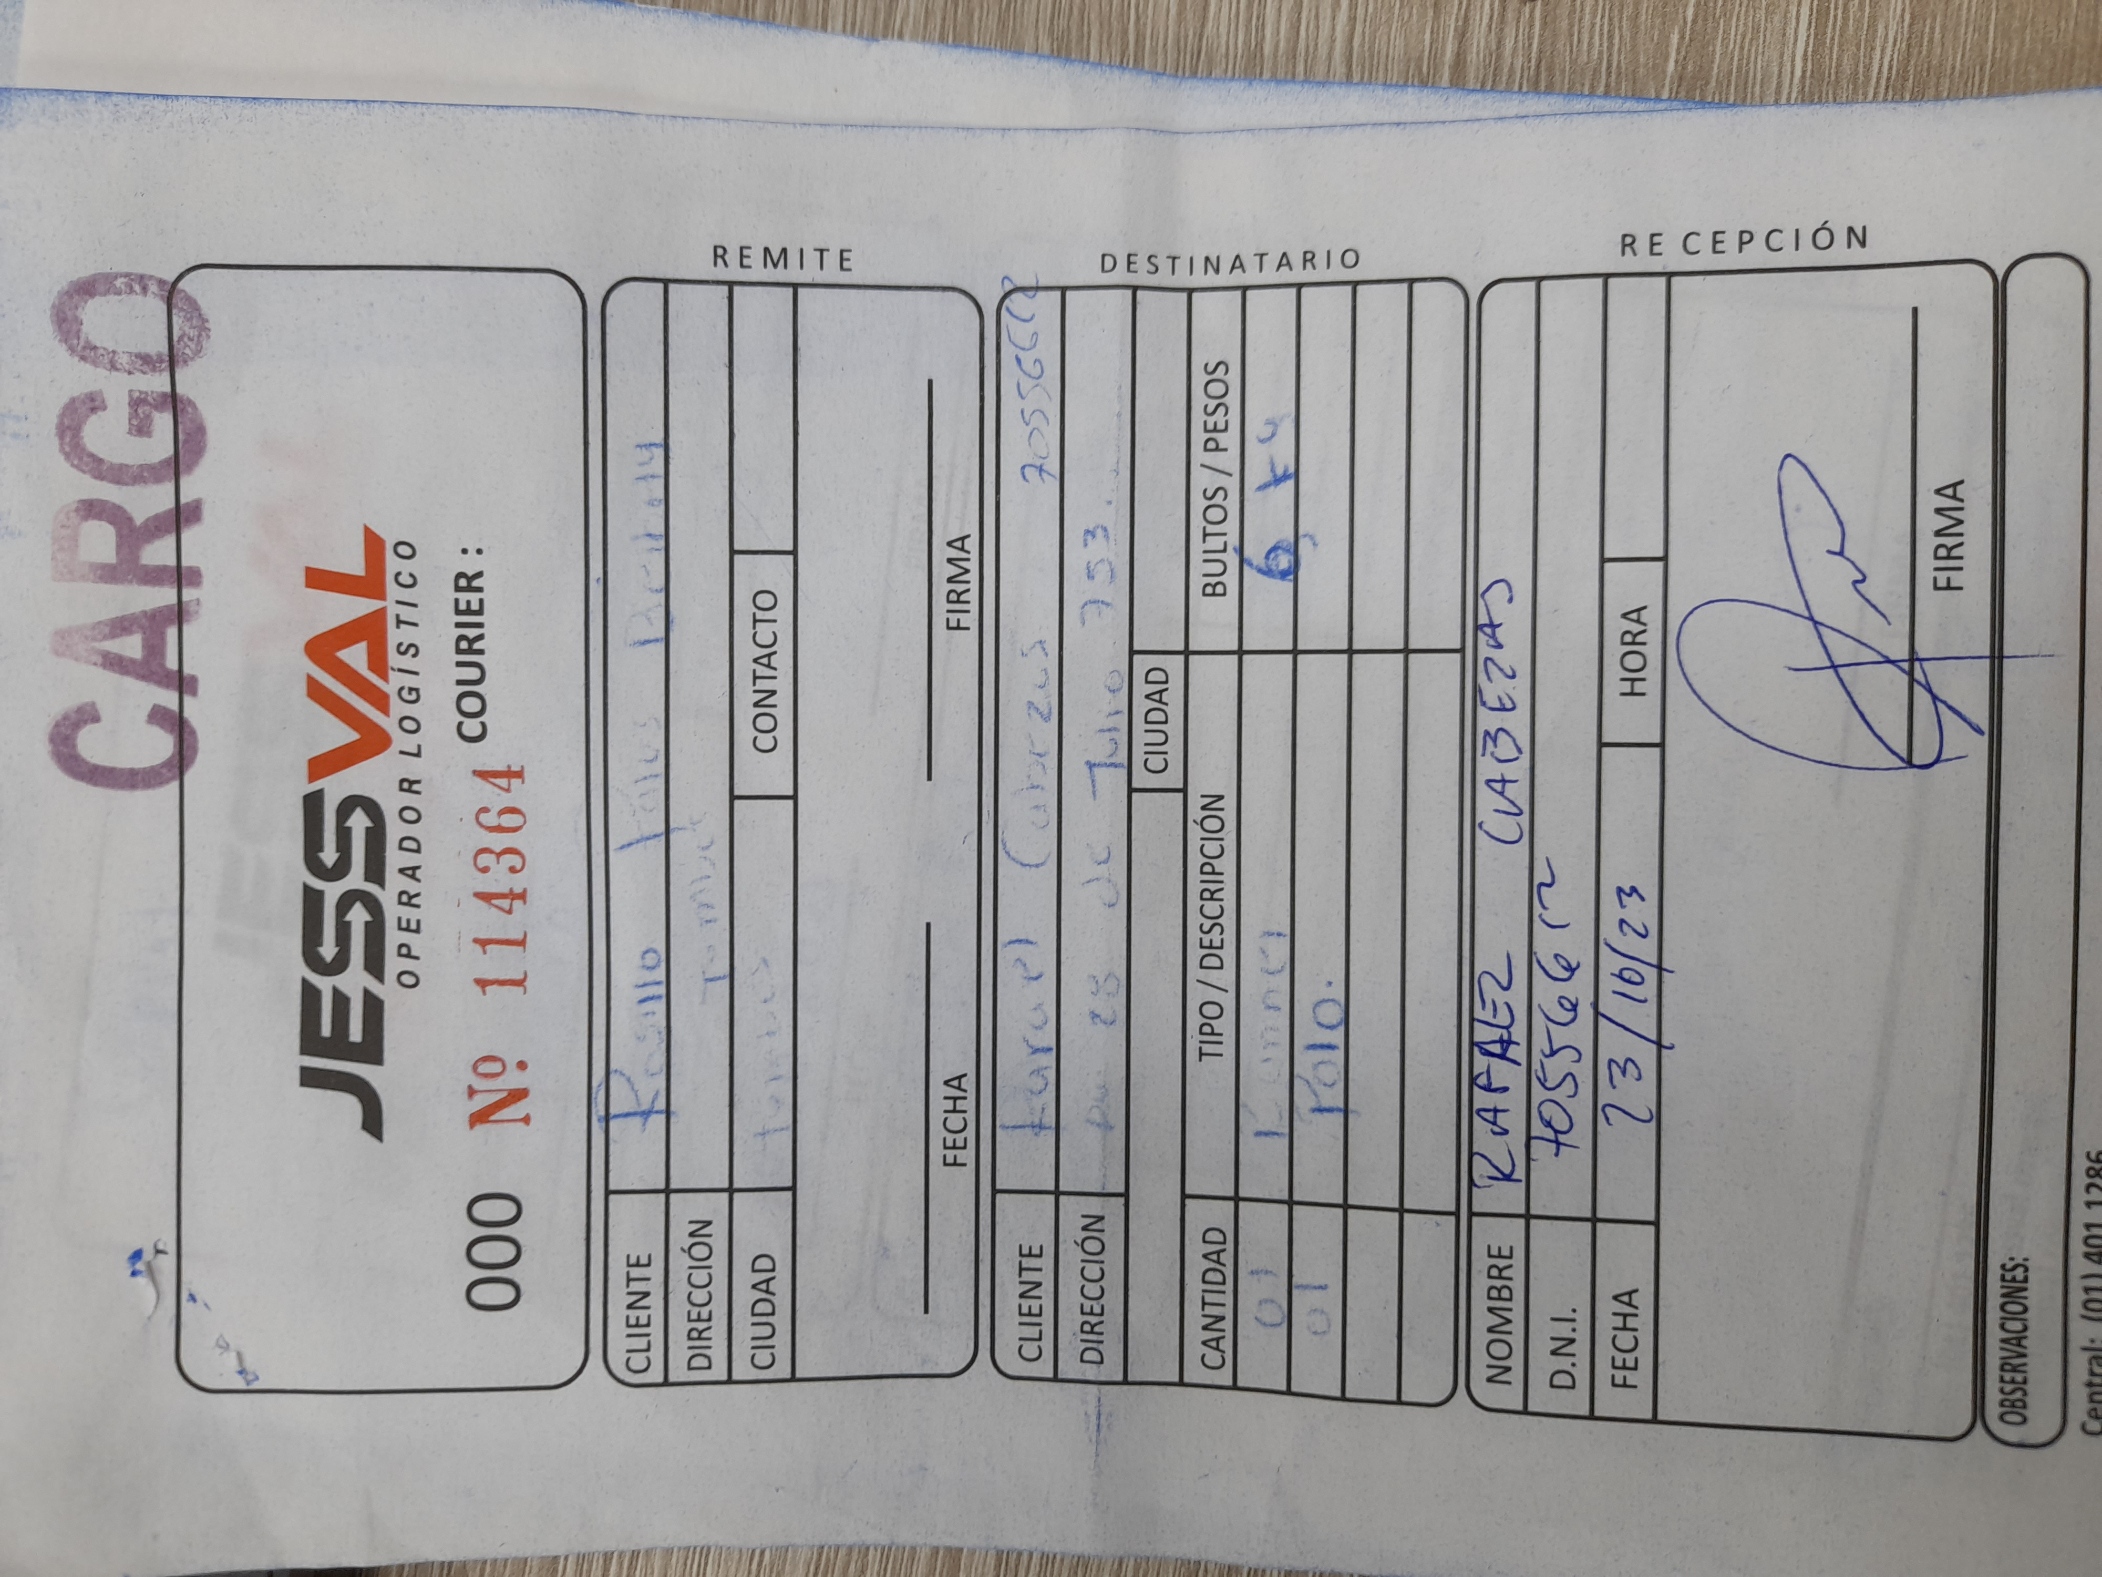 CARGO
JESSVAL
OPERADOR LOGÍSTICO
000 Nº. 114364 COURIER :
REMITE
CLIENTE Rosillo
DIRECCIÓN Tumbes
CIUDAD tumbes CONTACTO
FECHA FIRMA
DESTINATARIO
CLIENTE Rafael Cabezas 70556612
DIRECCIÓN Av 28 de Julio 753.
CIUDAD
CANTIDAD TIPO / DESCRIPCIÓN BULTOS / PESOS
01 Runner 6 kg
01 Polo.
RECEPCIÓN
NOMBRE RAFAEL CABEZAS
D.N.I. 70556612
FECHA 23/10/23 HORA
FIRMA
OBSERVACIONES:
Central: (01) 401 1286